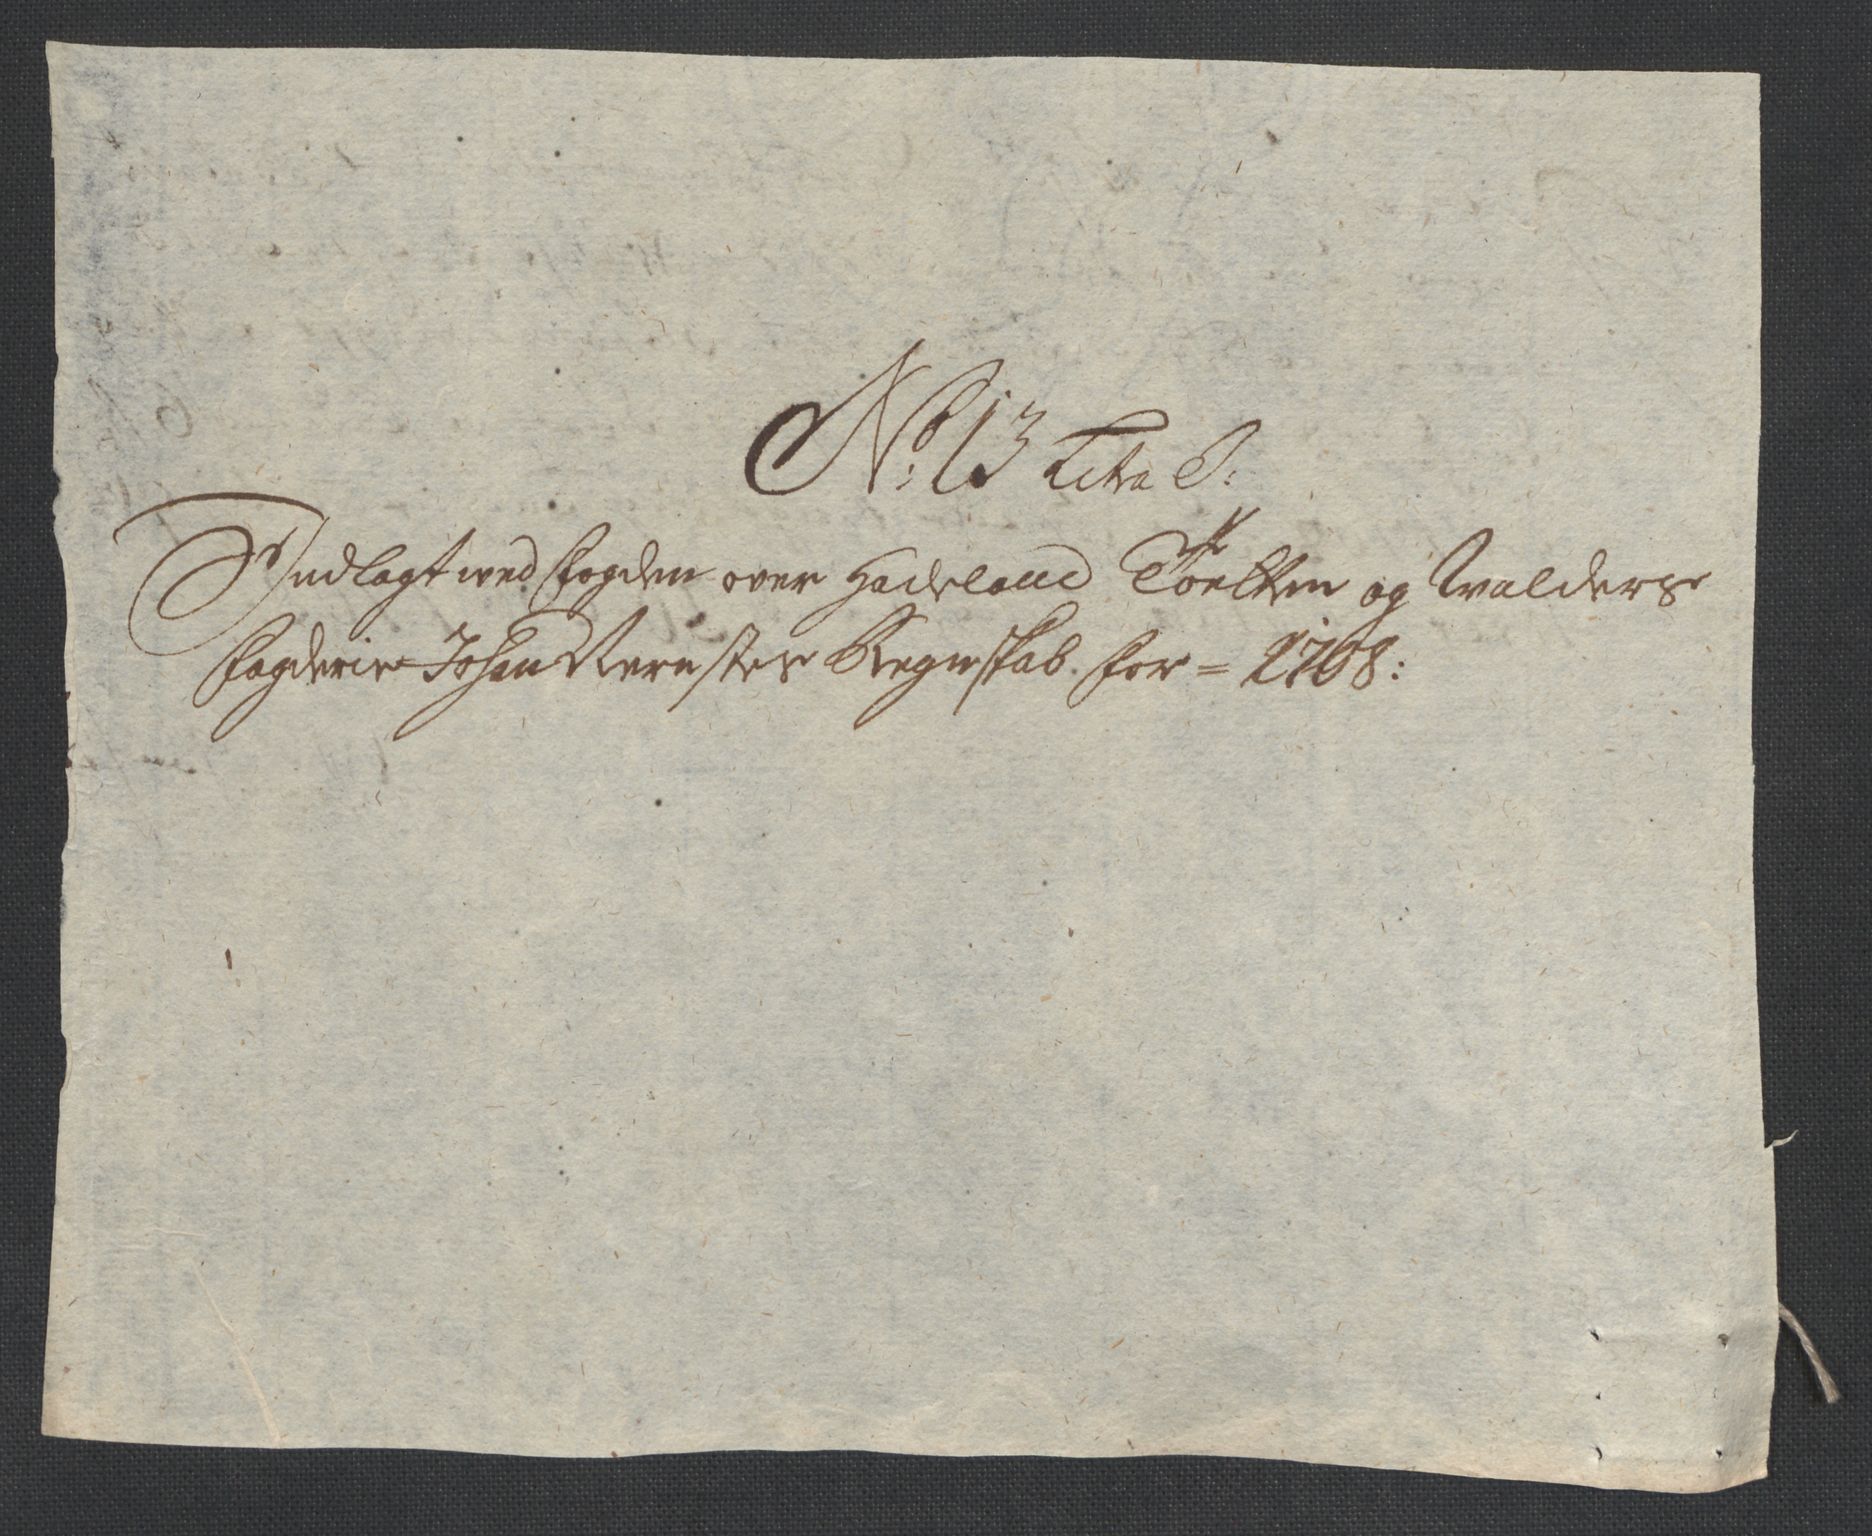 No: 13 Litra S:
Indlagt wed fogden over Hadeland Toelten og Walders
fogderie Johan Rernstes Regnskab for = 1708: